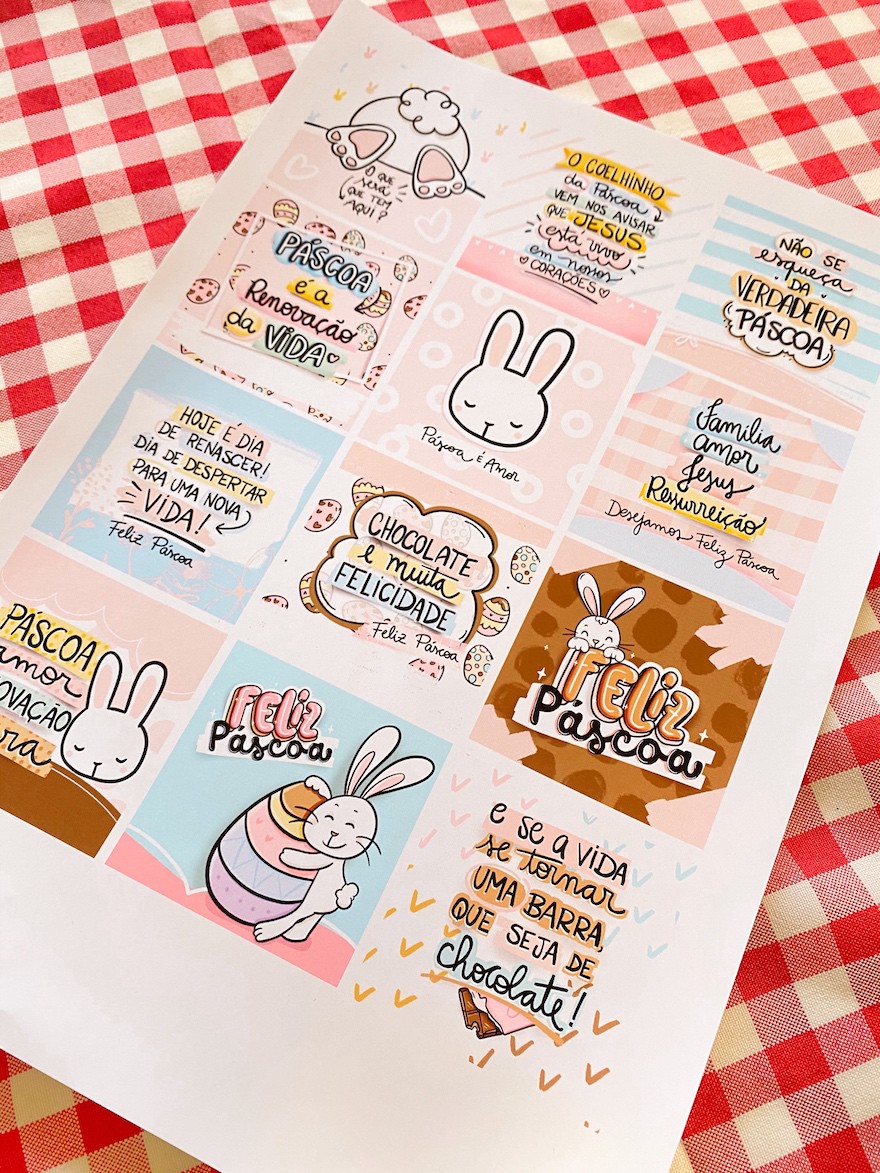 O QUE
será
QUE TEM
AQUI?
O COELHINHO
da Páscoa
VEM NOS AVISAR
QUE JESUS
está vivo
em nossos
CORAÇÕES
NÃO SE
esqueça
DA
VERDADEIRA
PÁSCOA
PÁSCOA
é a
Renovação
da VIDA
Páscoa é Amor
Família
amor
Jesus
Ressurreição
Desejamos Feliz Páscoa
HOJE É DIA
DE RENASCER!
DIA DE DESPERTAR
PARA UMA NOVA
VIDA!
Feliz Páscoa
CHOCOLATE
e muita
FELICIDADE
Feliz Páscoa
FELIZ
Páscoa
PÁSCOA
amor
FELIZ
Páscoa
e se a VIDA
se tornar
UMA BARRA,
QUE SEJA DE
chocolate!